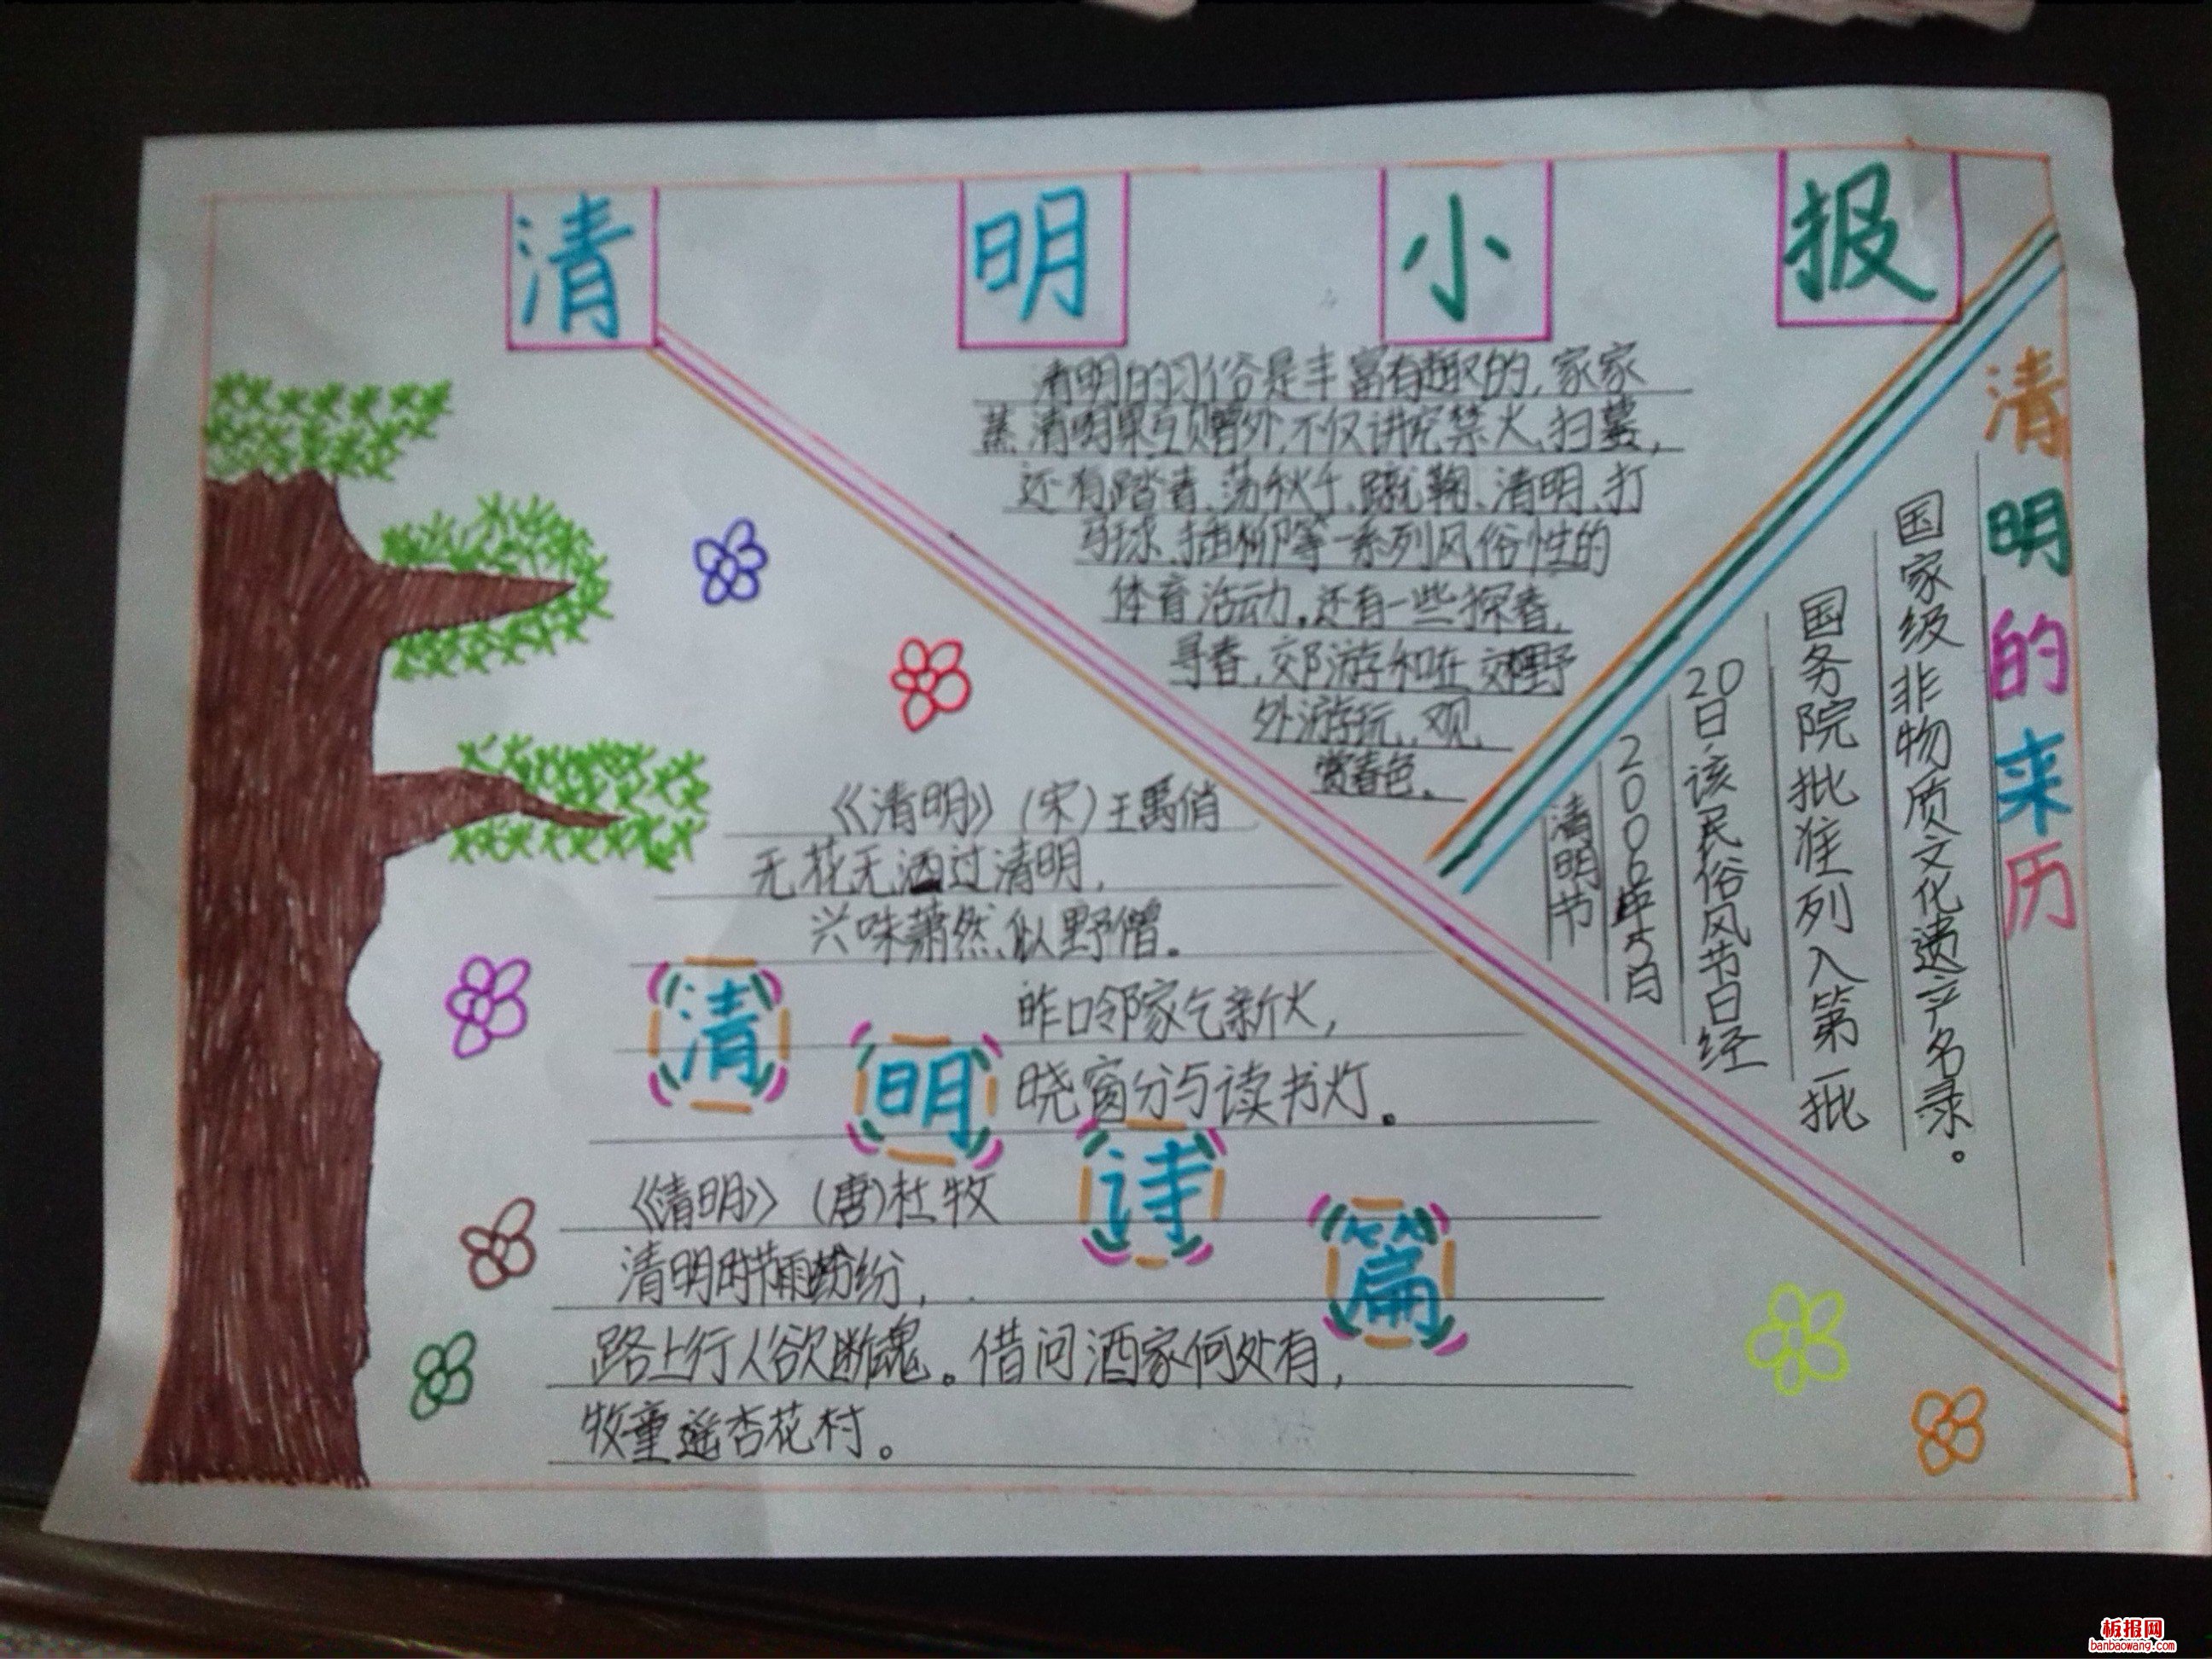 清明小报
清明的习俗是丰富有趣的,家家
蒸清明果互赠外,不仅讲究禁火、扫墓,
还有踏青、荡秋千、蹴鞠、清明、打
马球、插柳等一系列风俗性的
体育活动。还有一些探春,
寻春,郊游和在郊野
外游玩、观
赏春色。
清明的来历
清明节
2006年5月
20日,该民俗风节日经
国务院批准列入第一批
国家级非物质文化遗产名录。
《清明》(宋)王禹俏
无花无酒过清明,
兴味萧然似野僧。
昨口邻家乞新火,
晓窗分与读书灯。
清明诗篇
《清明》(唐)杜牧
清明时节雨纷纷,
路上行人欲断魂。借问酒家何处有,
牧童遥杏花村。
板报网
banbaowang.com